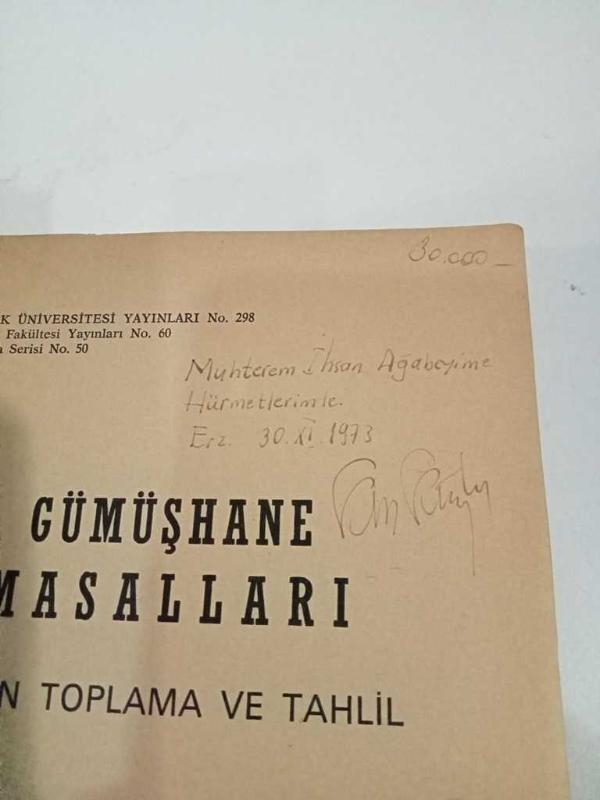 30.000_
K ÜNİVERSİTESİ YAYINLARI No. 298
Fakültesi Yayınları No. 60
Serisi No. 50
Muhterem İhsan Ağabeyime
Hürmetlerimle.
Erz. 30.XI.1973
GÜMÜŞHANE
MASALLARI
N TOPLAMA VE TAHLİL